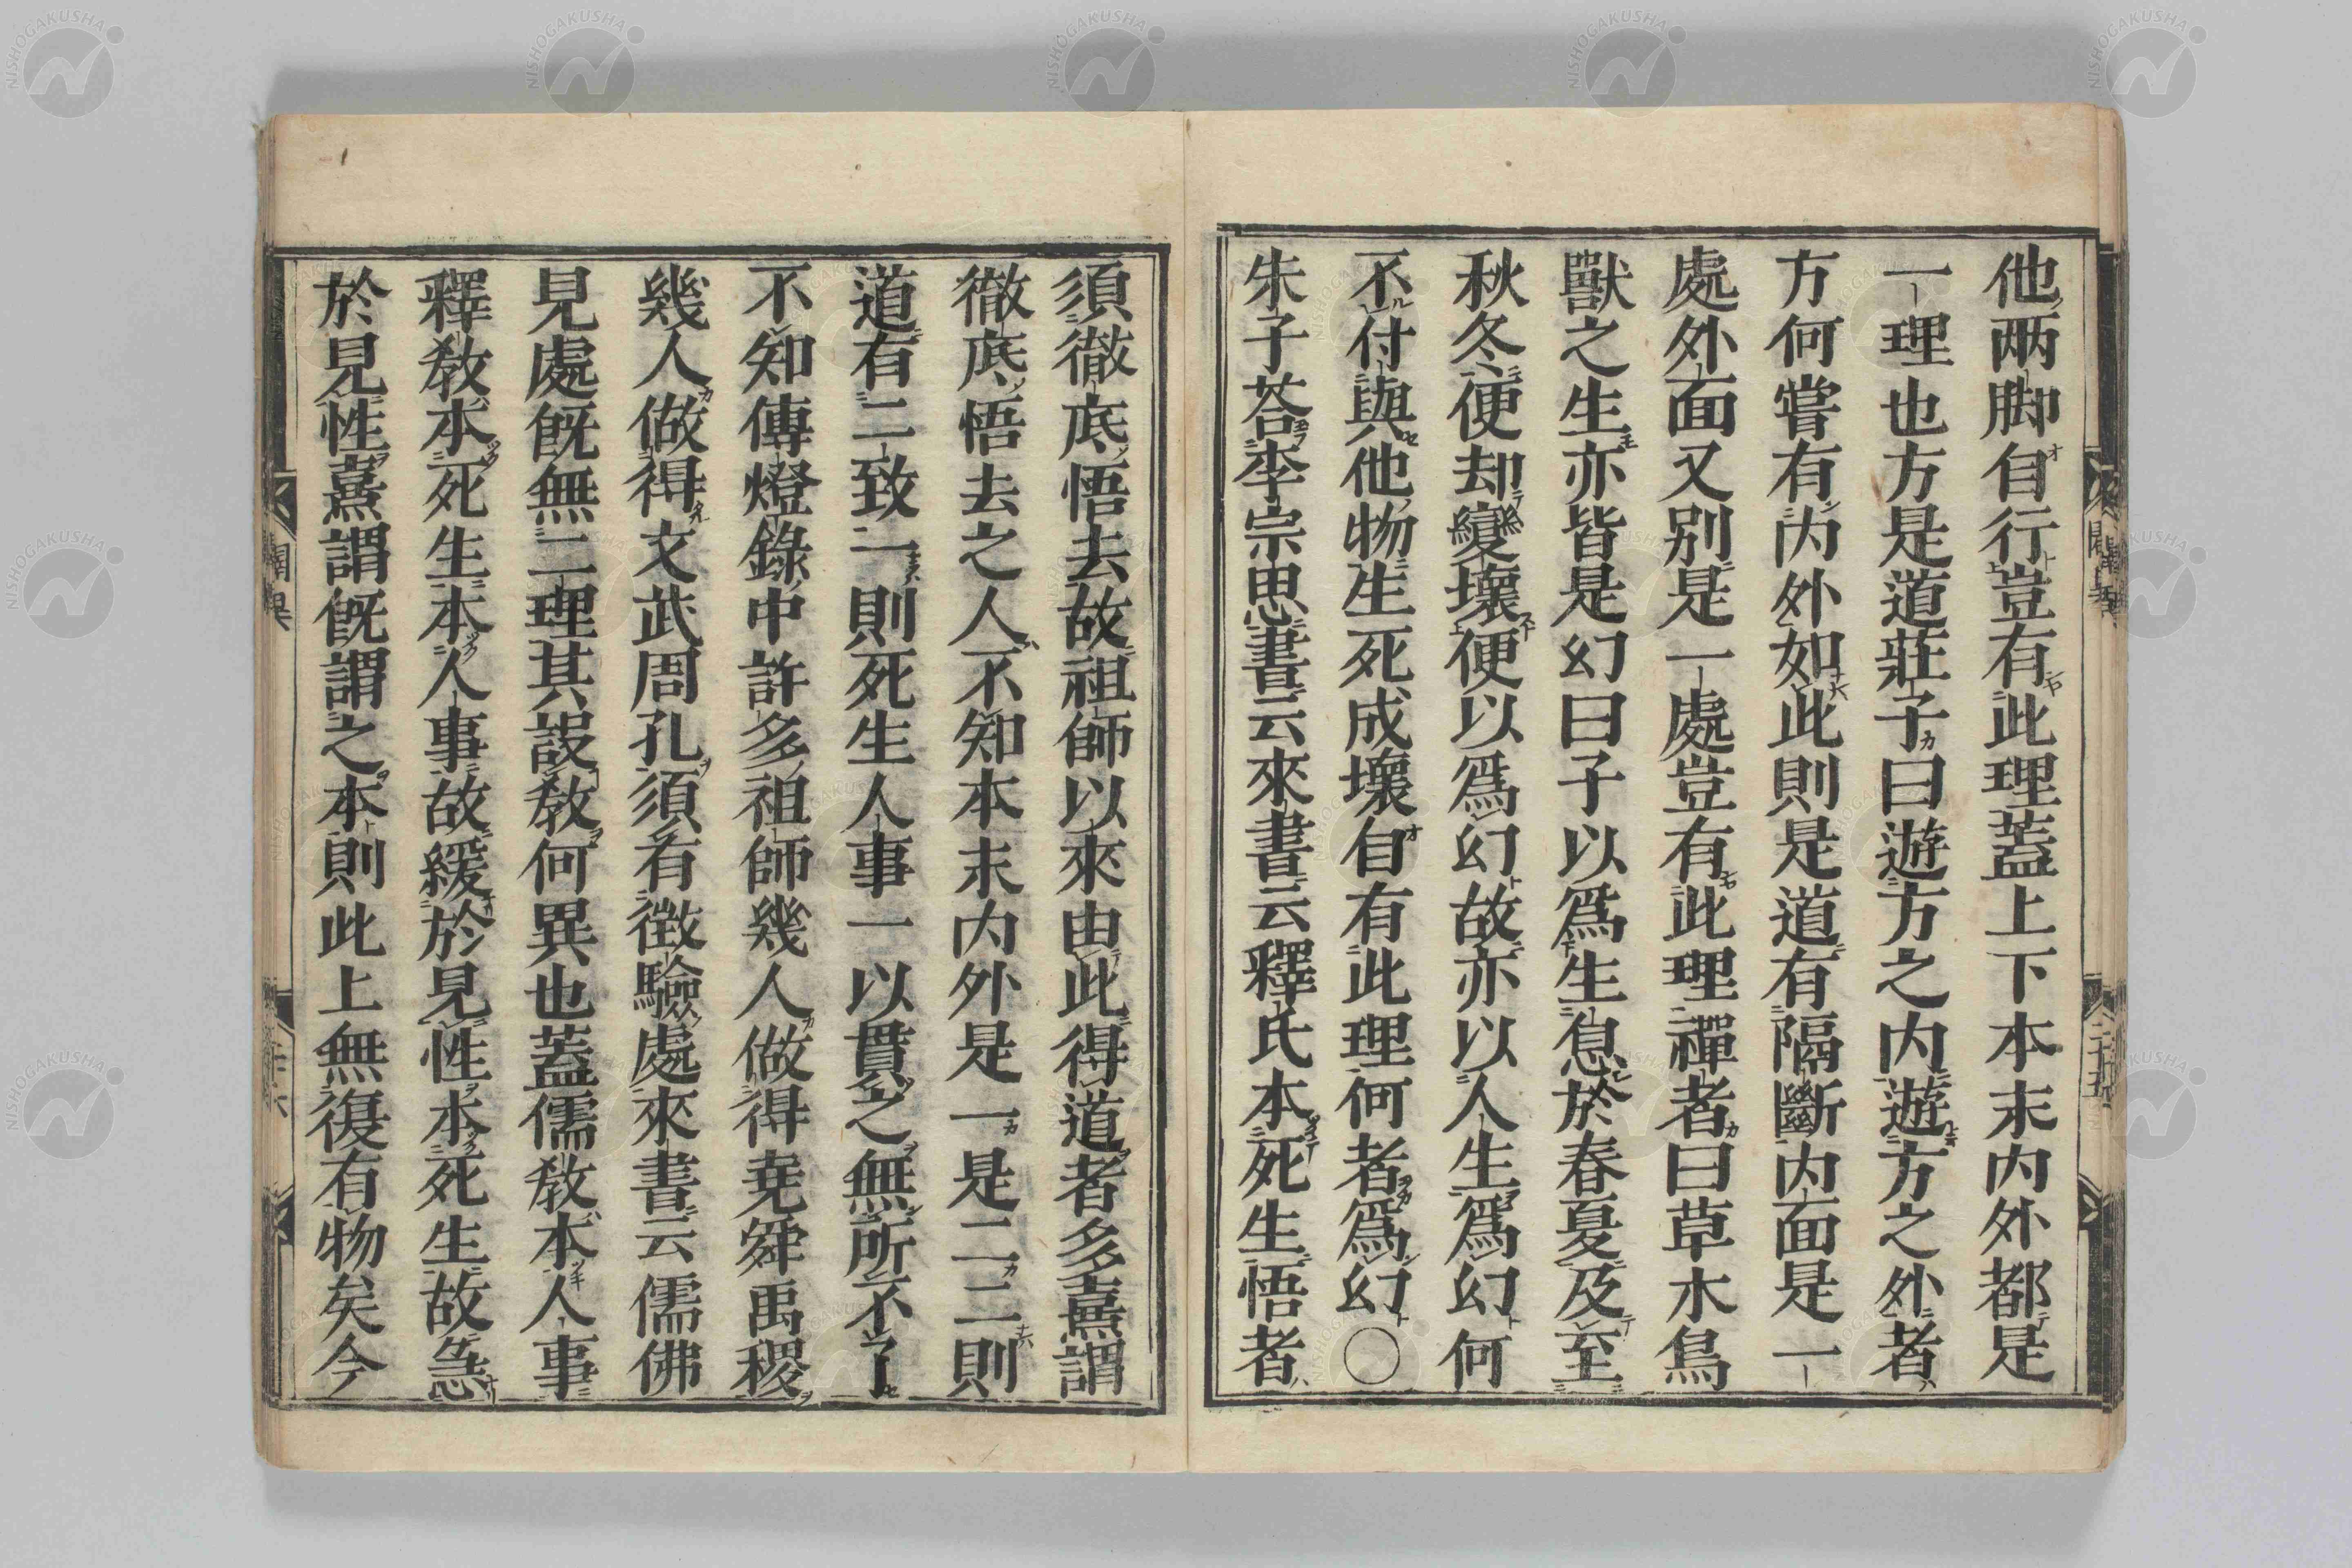 他兩脚自行豈有此理蓋上下本末内外都是
一理也方是道莊子曰遊方之内遊方之外者
方何嘗有内外如此則是道有隔斷内面是一
處外面又别是一處豈有此理禪者曰草木鳥
獸之生亦皆是幻曰子以爲生息於春夏及至
秋冬便却變壞便以爲幻故亦以人生爲幻何
不付與他物生死成壞自有此理何者爲幻〇
朱子荅李宗思書云來書云釋氏本死生悟者
須徹底悟去故祖師以來由此得道者多熹謂
徹底悟去之人不知本末内外是一是二二則
道有二致一則死生人事一以貫之無所不了
不知傳燈錄中許多祖師幾人做得堯舜禹稷
幾人做得文武周孔須有徴驗處來書云儒佛
見處既無二理其設教何異也蓋儒教本人事
釋教本死生本人事故緩於見性本死生故急
於見性熹謂既謂之本則此上無復有物矣今
闢異
二十五
NISHOGAKUSHA